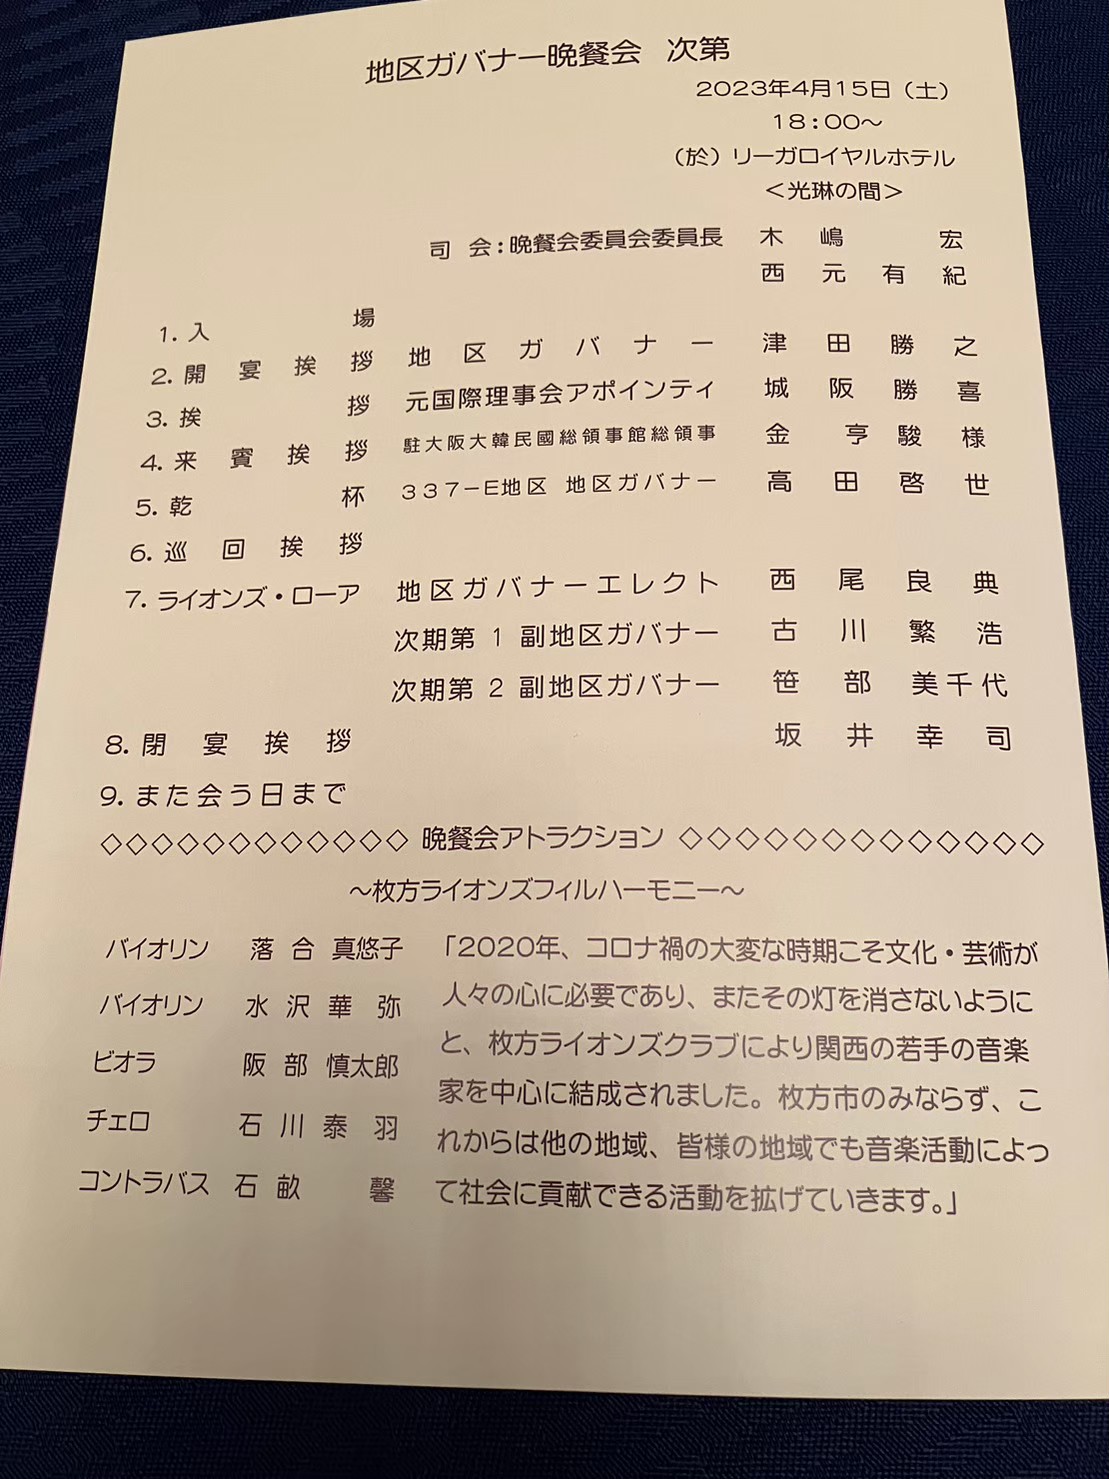 地区ガバナー晩餐会 次第
2023年4月15日（土）
18:00～
（於）リーガロイヤルホテル
＜光琳の間＞
司 会：晩餐会委員会委員長 木 嶋 宏
西 元 有 紀
1. 入 場
2. 開 宴 挨 拶 地 区 ガ バ ナ ー 津 田 勝 之
3. 挨 拶 元国際理事会アポインティ 城 阪 勝 喜
4. 来 賓 挨 拶 駐大阪大韓民國総領事館総領事 金 亨 駿 様
5. 乾 杯 337-E地区 地区ガバナー 高 田 啓 世
6. 巡 回 挨 拶
7. ライオンズ・ローア 地区ガバナーエレクト 西 尾 良 典
次期第 1 副地区ガバナー 古 川 繁 浩
次期第 2 副地区ガバナー 笹 部 美千代
8. 閉 宴 挨 拶 坂 井 幸 司
9. また会う日まで
◇◇◇◇◇◇◇◇◇◇◇◇ 晩餐会アトラクション ◇◇◇◇◇◇◇◇◇◇◇◇◇
～枚方ライオンズフィルハーモニー～
バイオリン 落 合 真悠子
バイオリン 水 沢 華 弥
ビオラ 阪 部 慎太郎
チェロ 石 川 泰 羽
コントラバス 石 畝 馨
「2020年、コロナ禍の大変な時期こそ文化・芸術が
人々の心に必要であり、またその灯を消さないように
と、枚方ライオンズクラブにより関西の若手の音楽
家を中心に結成されました。枚方市のみならず、こ
れからは他の地域、皆様の地域でも音楽活動によっ
て社会に貢献できる活動を拡げていきます。」